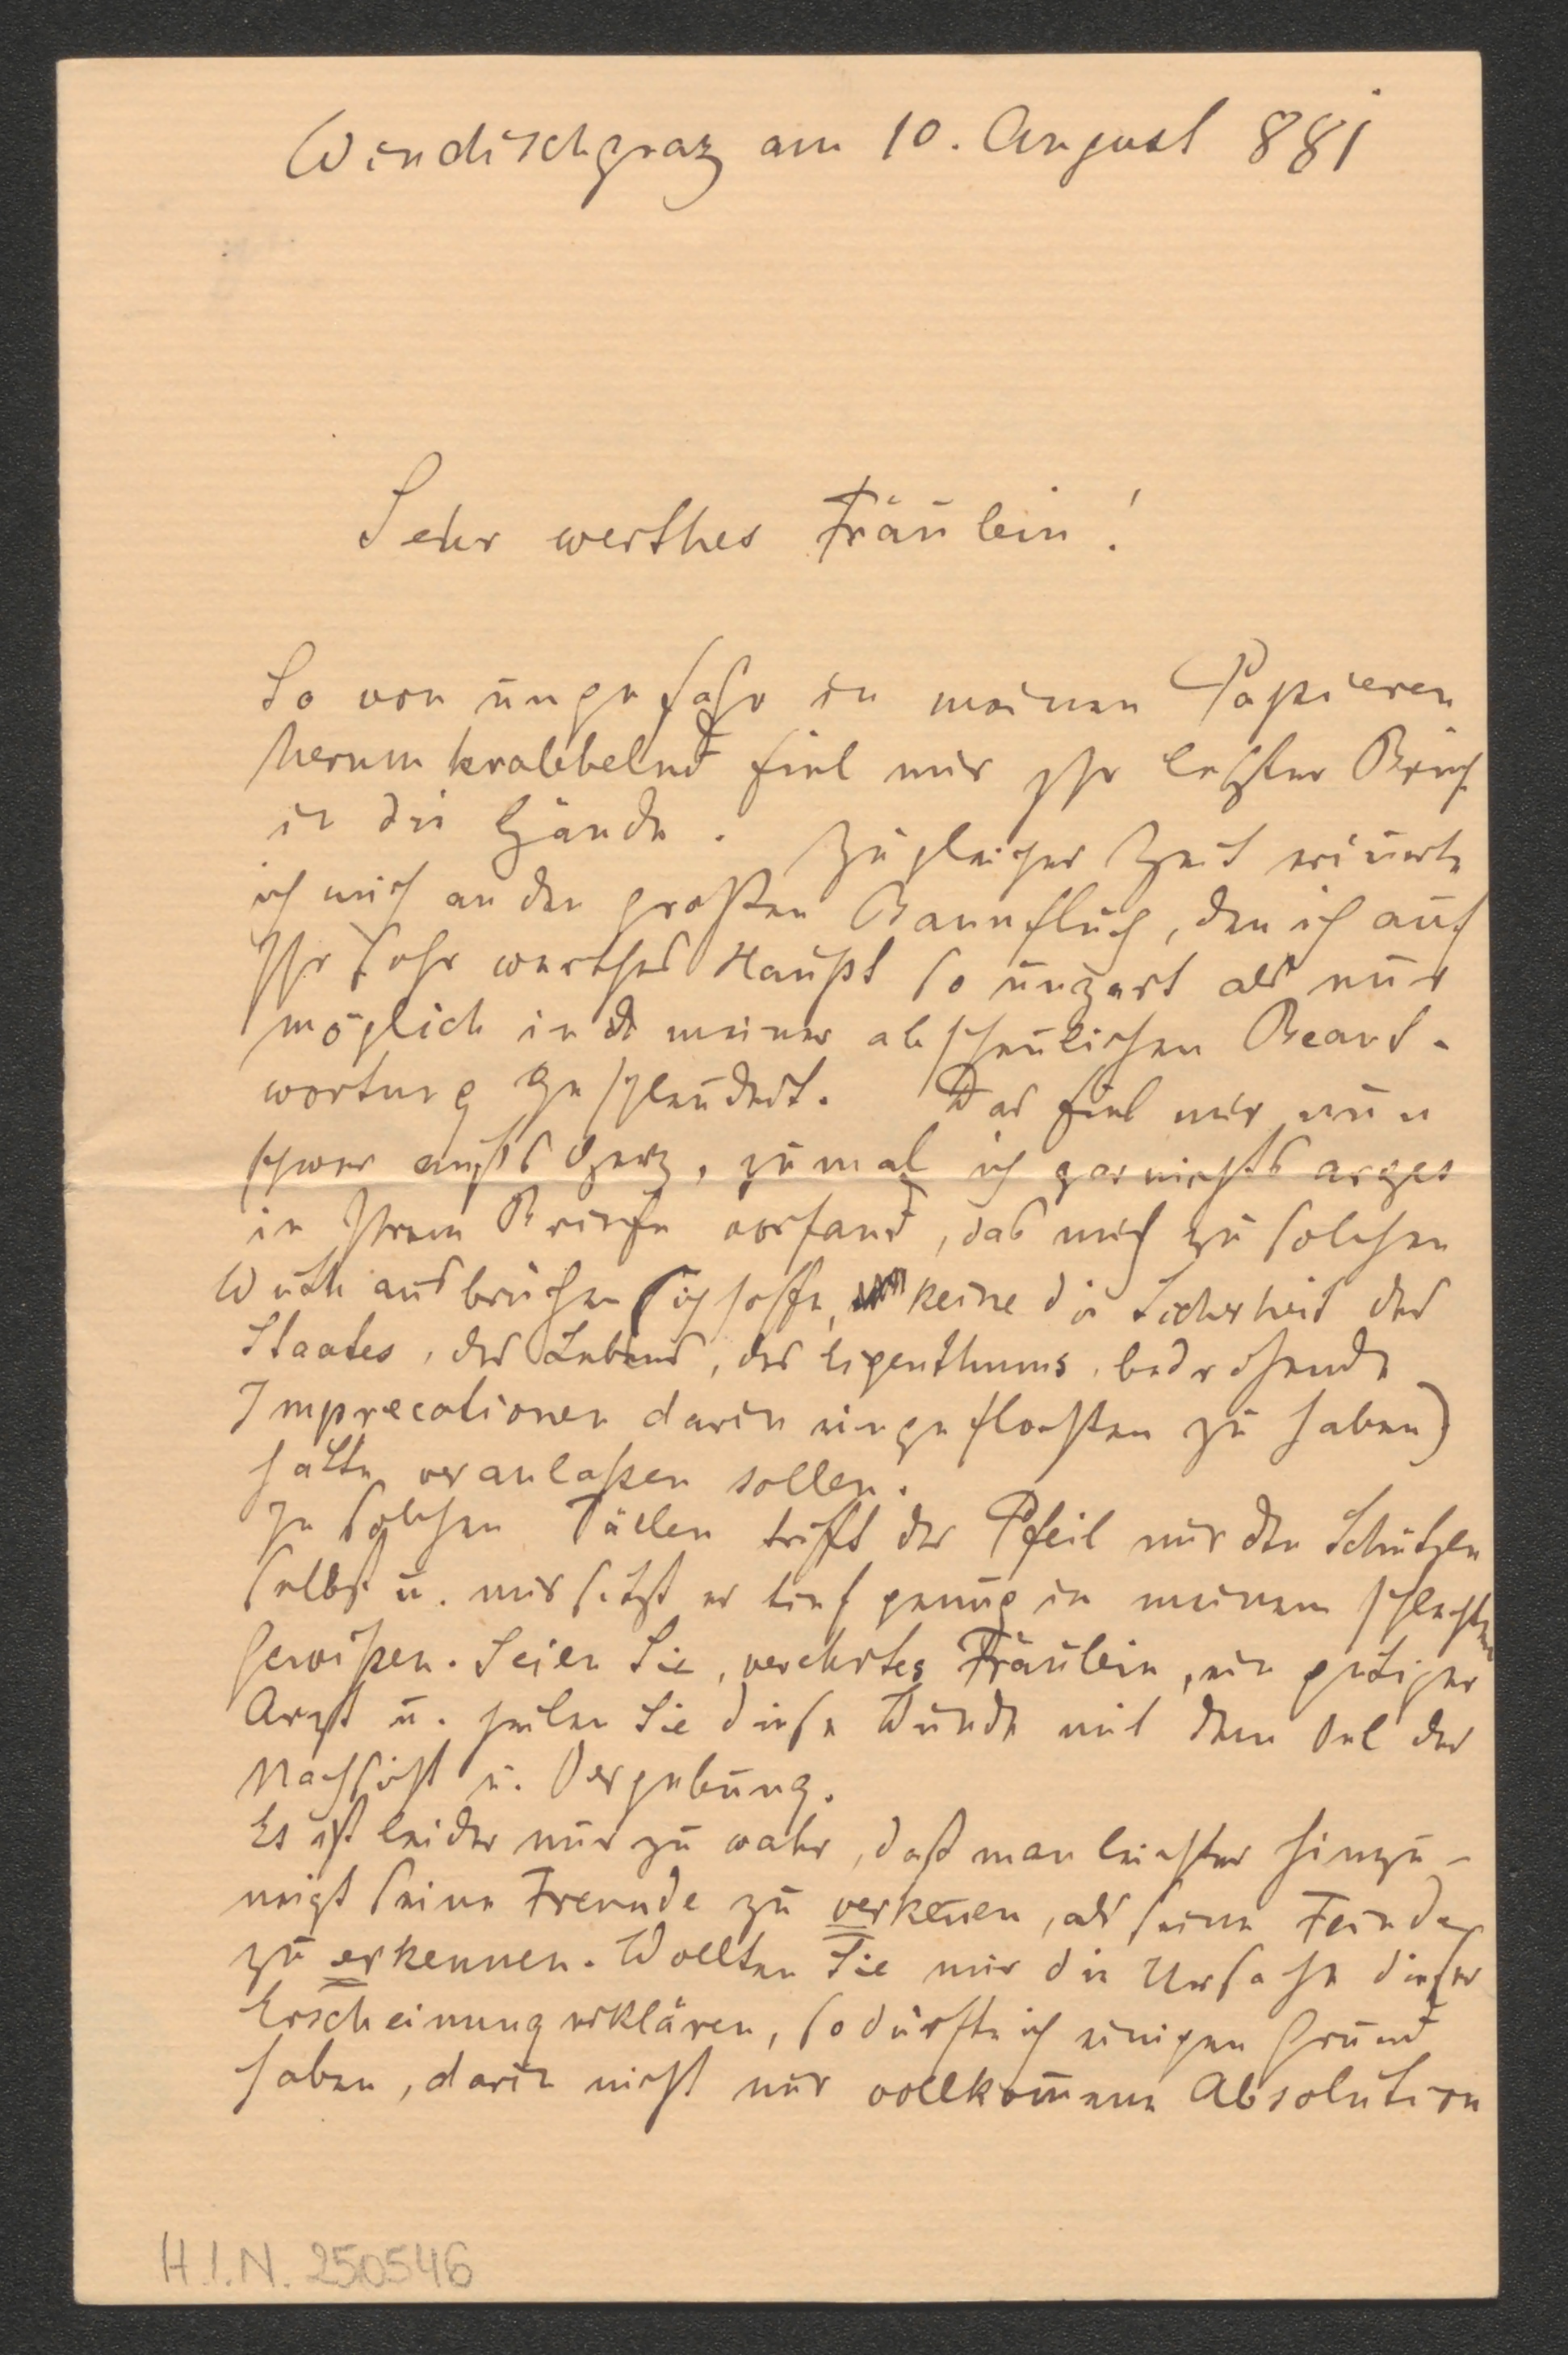 Windischgraz am 10. August 881
Sehr werthes Fräulein!
So von ungefähr in meinen Papieren
herumkrabbelnd fiel mir Ihr letzter Brief
in die Hände. Zu gleicher Zeit erin̅erte
ich mich an den großen Bannfluch, den ich auf
Ihr sehr werthes Haupt so unzart als nur
möglich in meiner abscheulichen Beant-
wortung geschleudert. Das fiel mir nun
schwer auf's Herz, zumal ich gar nichts arges
in Ihrem Briefe vorfand, das mich zu solchen
Wuthausbrüchen (ich hoffe, keine die Sicherheit des
Staates, des Lebens, des Eigenthums bedrohende
Imprecationen darin eingeflochten zu haben)
hätte veranlaßen sollen.
In solchen Fällen trifft der Pfeil nur den Schützen
selbst u. mir sitzt er tief genug in meinem schlechten
Gewißen. Seien Sie, verehrtes Fräulein, ein gütiger
Arzt u. heilen Sie diese Wunde mit dem Oel der
Nachsicht u. Vergebung.
Es ist leider nur zu wahr, daß man leichter hinzu-
neigt seine Freunde zu verken̅en, als seine Feinde
zu erkennen. Wollten Sie mir die Ursache dieser
Erscheinung erklären, so dürfte ich einigen Grund
haben, darin nicht nur vollkom̅ene Absolution
H.I.N. 250546